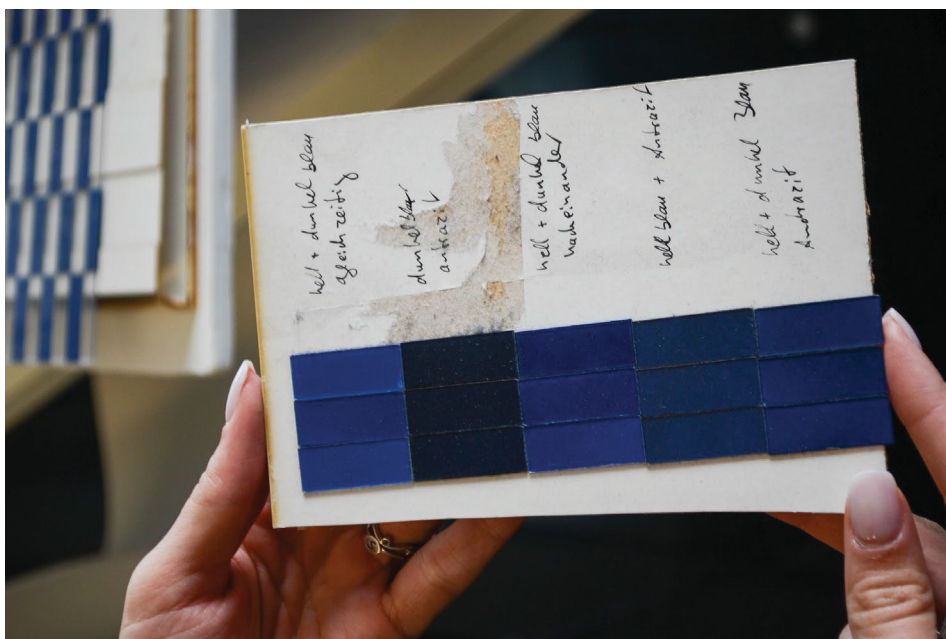 hell + dunkel blau
gleichzeitig
dunkelblau
antrazit
hell + dunkel blau
nacheinander
hellblau + Antrazit
hell + dunkel Blau
Antrazit